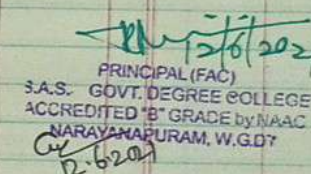 12/6/202
PRINCIPAL (FAC)
S.A.S. GOVT. DEGREE COLLEGE
ACCREDITED "B" GRADE by NAAC
NARAYANAPURAM, W.G.DT
12.6.2021